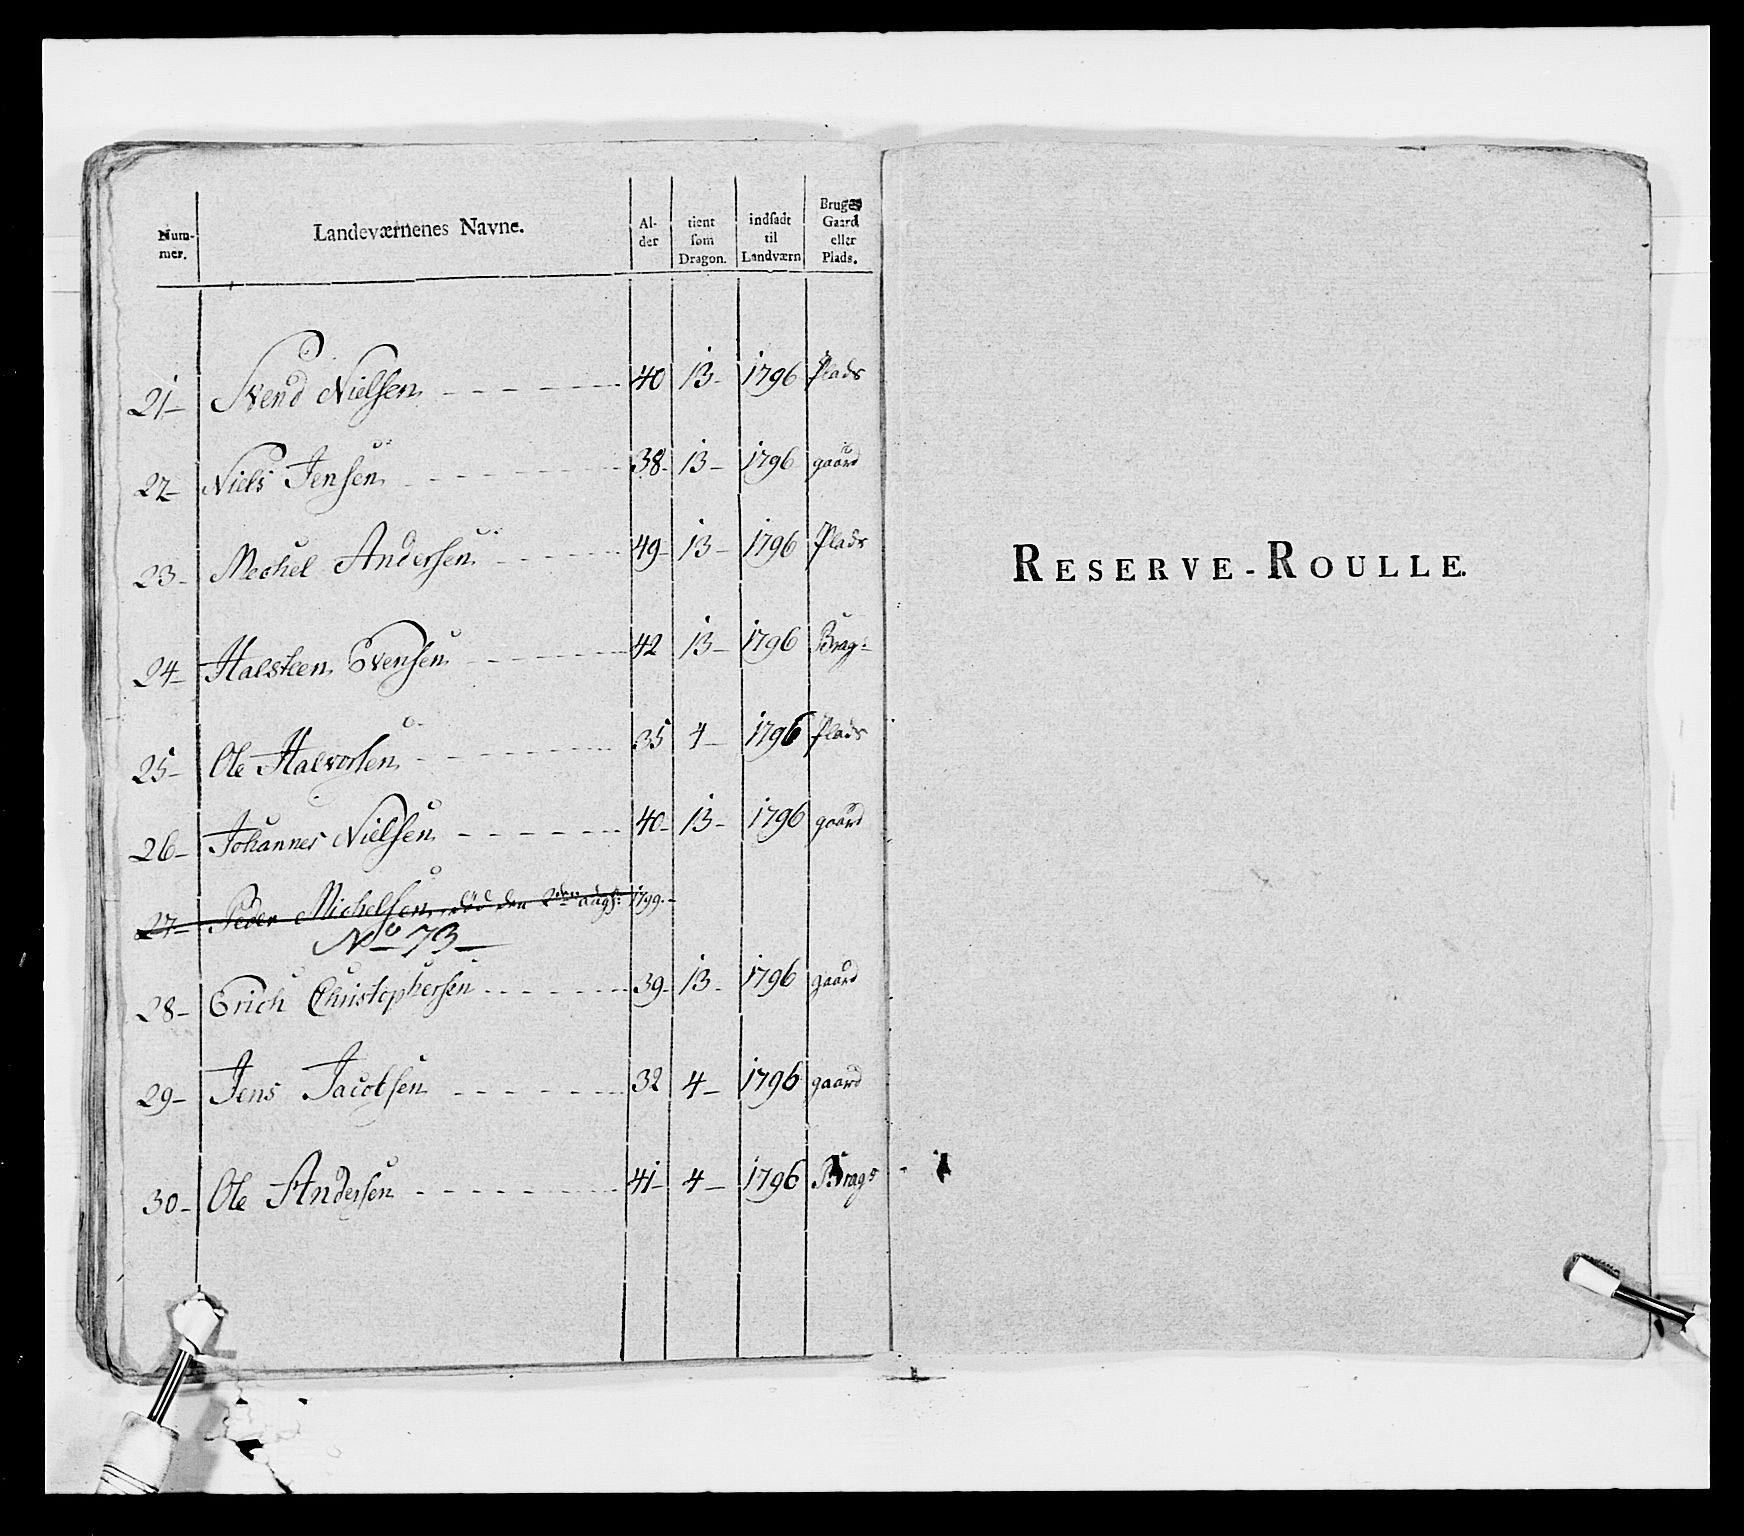 Num-
mer.
Landeværnenes Navne.
Al-
der
tient
som
Dragon.
indsadt
til
Landværn
Bruger
Gaard
eller
Plads.
21- Svend Nielsen 40 13- 1796 Plads
22- Niels Jensen 38- 13- 1796 gaard
23- Mechel Andersen 49- 13- 1796 Plads
24- Halsteen Evensen 42 13- 1796 Brag:
25- Ole Halvorsen 35 4- 1796 Plads
26- Johannes Nielsen 40- 13- 1796 gaard
27- Peder Michelsen, död den 2den augs: 1799.-
No 73-
28- Erich Christophersen 39- 13- 1796 gaard
29- Jens Jacobsen 32 4- 1796 gaard
30- Ole Andersen 41- 4- 1796 Brags
RESERVE-ROULLE.